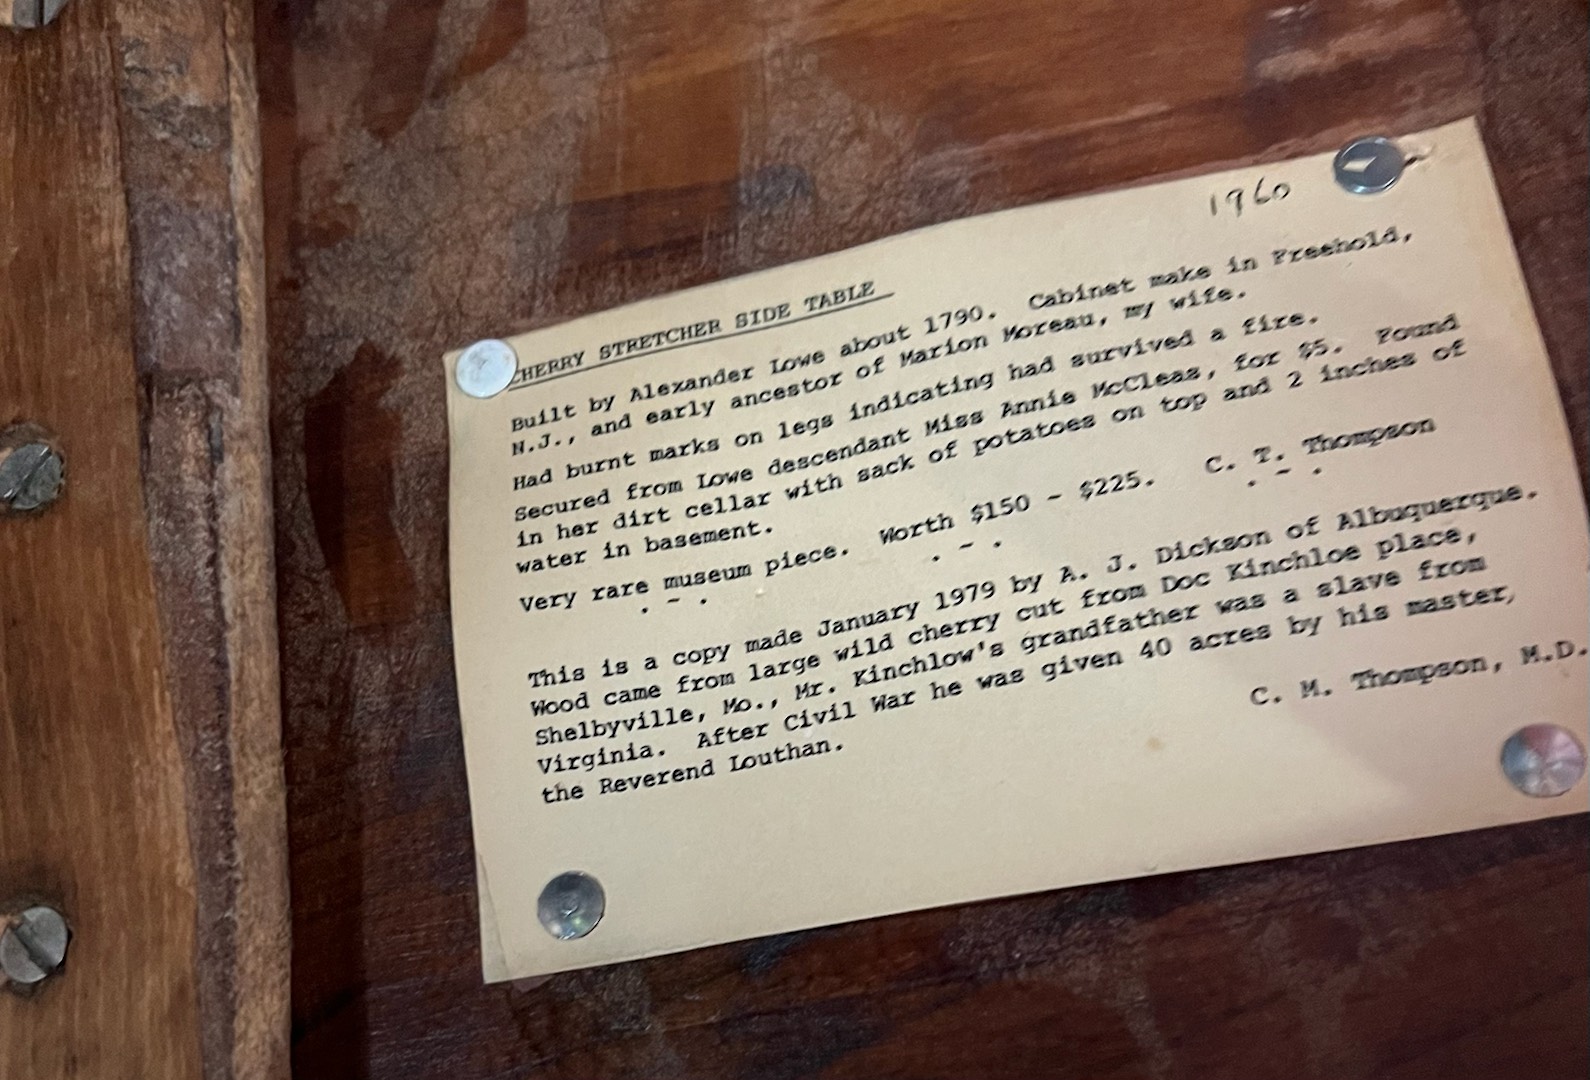 1960
CHERRY STRETCHER SIDE TABLE
Built by Alexander Lowe about 1790. Cabinet make in Freehold,
N.J., and early ancestor of Marion Moreau, my wife.
Had burnt marks on legs indicating had survived a fire.
Secured from Lowe descendant Miss Annie McCleas, for $5. Found
in her dirt cellar with sack of potatoes on top and 2 inches of
water in basement.
Very rare museum piece. Worth $150 - $225. C. T. Thompson
. - . . - . . - .
This is a copy made January 1979 by A. J. Dickson of Albuquerque.
Wood came from large wild cherry cut from Doc Kinchloe place,
Shelbyville, Mo., Mr. Kinchlow's grandfather was a slave from
Virginia. After Civil War he was given 40 acres by his master,
the Reverend Louthan.
C. M. Thompson, M.D.